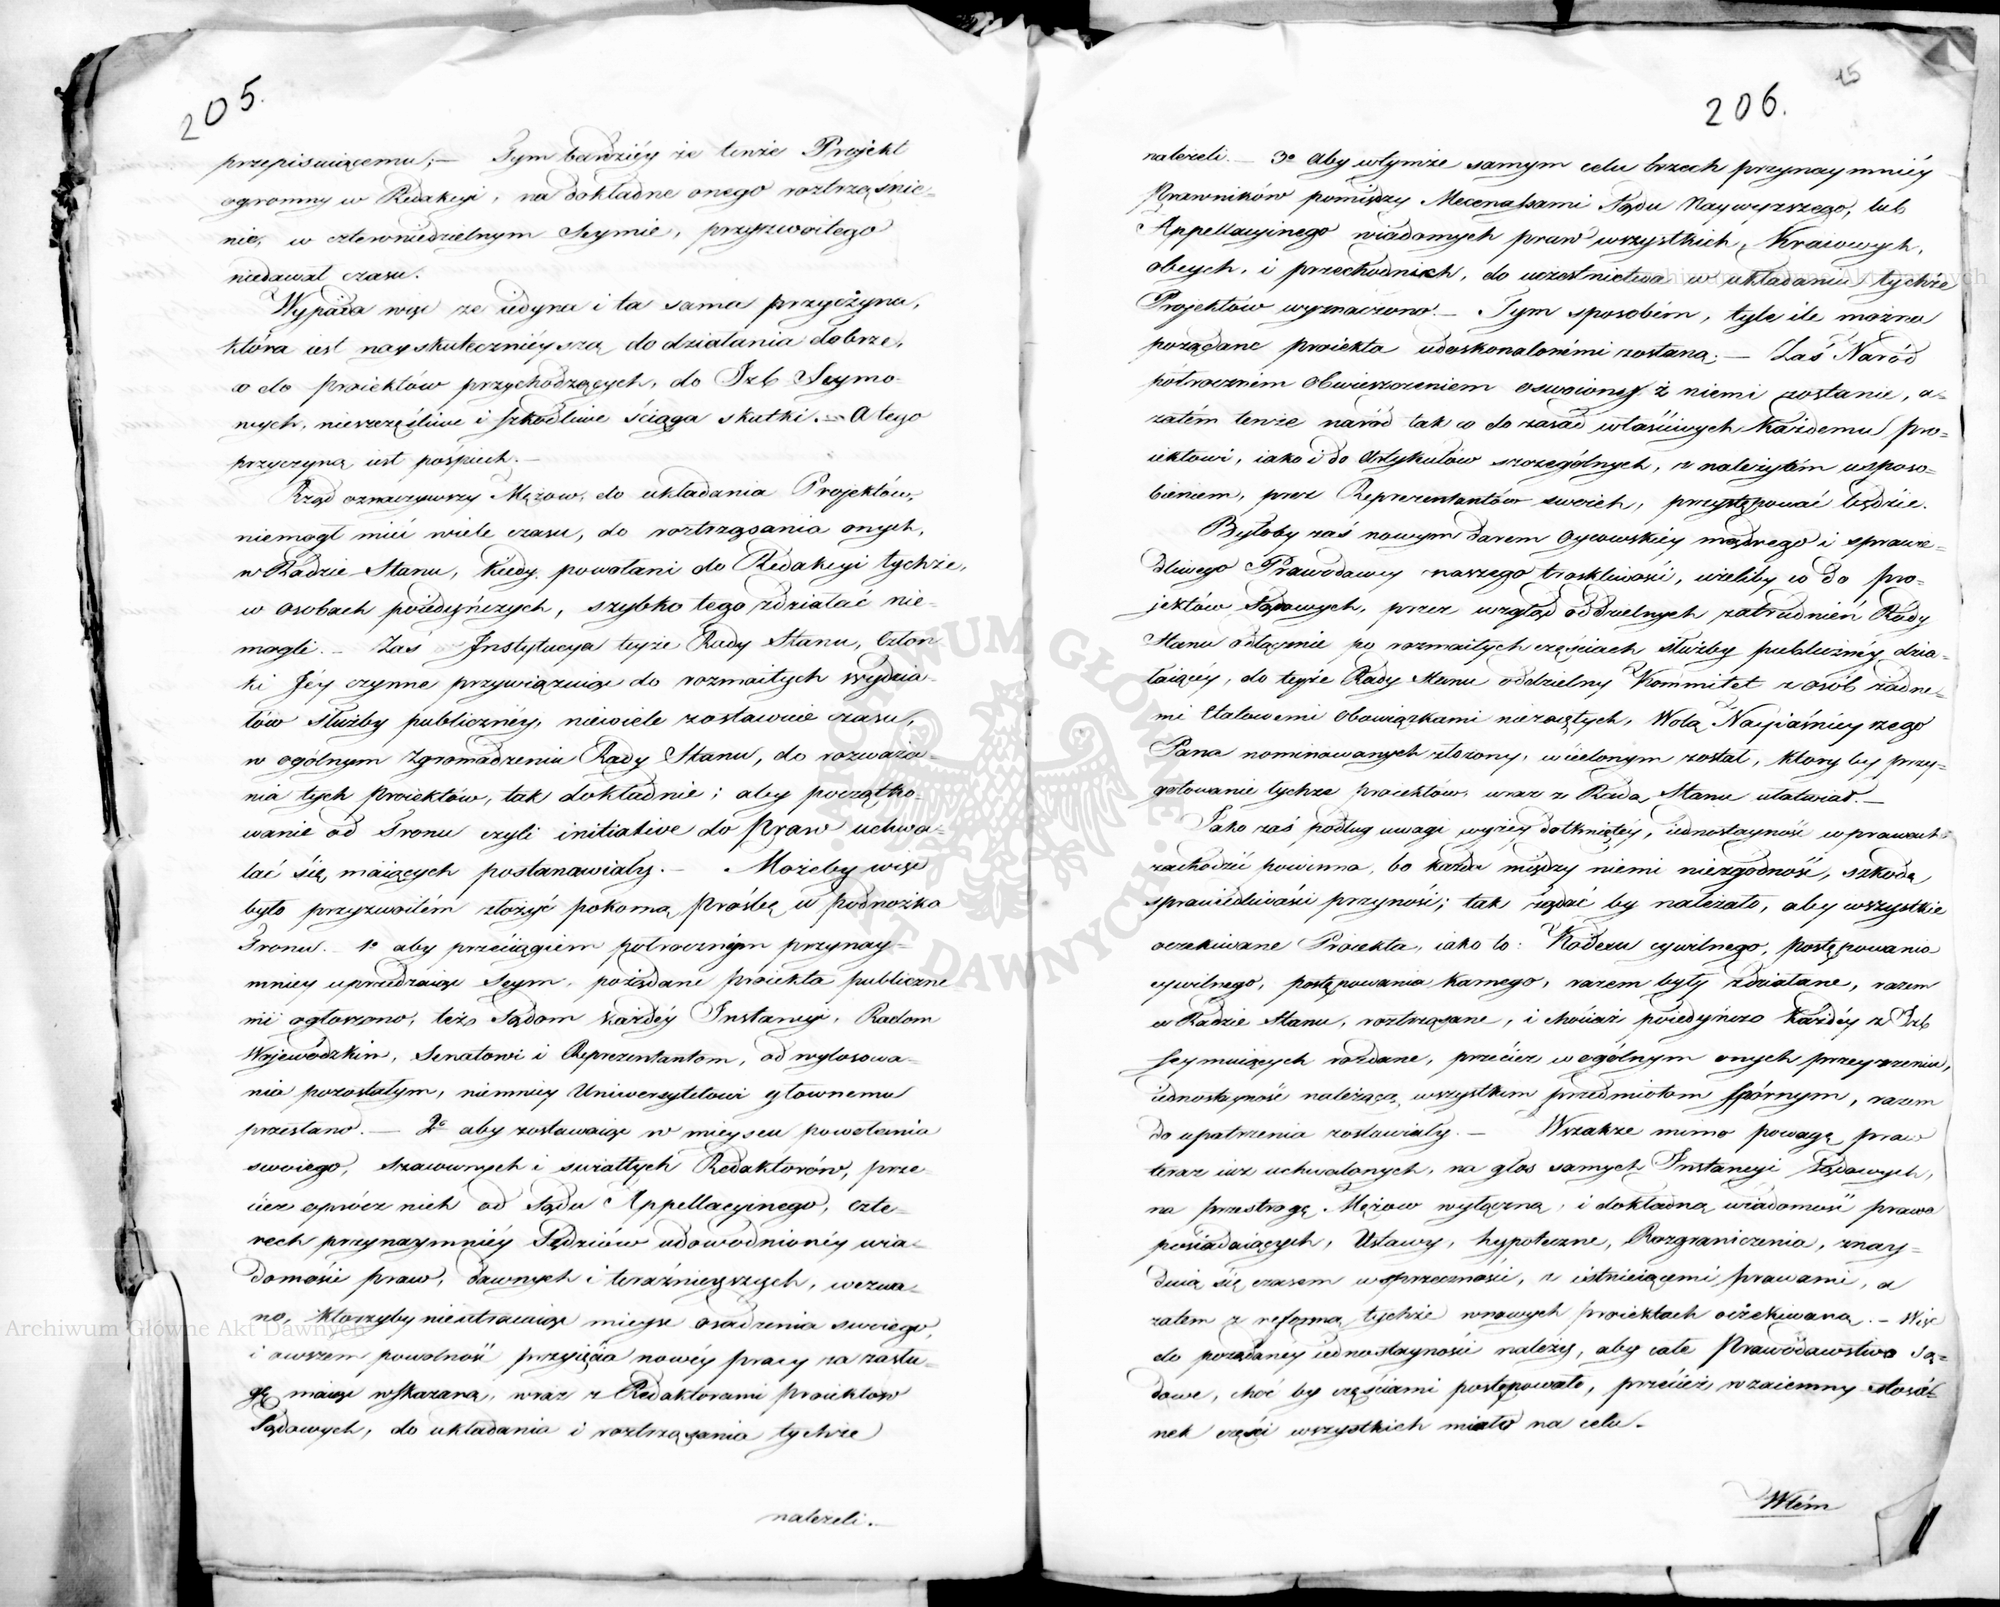 205.
przepisuiącemu; — Tym bardziéy że tenże Projekt
ogromny w Redakcyi, na dokładne onego roztrząśnie-
nie, w czterniedzielnym Seymie, przyzwoitego
niedawał czasu.
Wypada więc ze iedyna i ta sama przyczyna,
która iest nayskutecznieyszą do działania dobrze,
co do proiektów przychodzących, do Izb Seymo-
wych, nieszczęśliwe i szkodliwe ściąga skutki. — A tego
przyczyną iest pośpiech. —
Rząd oznaczywszy Mężow, do układania Projektów,
niemogł mieć wiele czasu, do roztrząsania onych,
w Radzie Stanu, kiedy powołani do Redakcyi tychże,
w osobach poiedyńczych, szybko tego zdziałać nie-
mogli. — Zaś Instytucya teyże Rady Stanu, Człon
ki Jéy czynne przywiązuiąc do rozmaitych wydzia-
łów służby publicznéy, niewiele zostawuie czasu,
w ogólnym Zgromadzeniu Rady Stanu, do rozważa-
nia tych Proiektów, tak dokładnie; aby początko-
wanie od Tronu czyli initiative do Praw uchwa-
lać się maiących postanawiały. — Możeby więc
było przyzwoitém złożyć pokorną Proźbę u podnóżka
Tronu. — 1o aby przeciągiem półrocznym przynay-
mniey uprzedzaiąc Seym, pożądane proiekta publicznie
ogłoszono, też Sądom każdéy Instancyi, Radom
Wojewódzkim, Senatowi i Reprezentantom, od wylosowa-
nia pozostałym, niemniey Uniwersytetowi głownemu
przesłano. — 2o aby zostawaiąc w mieyscu powołania
swoiego, szanownych i światłych Redaktorów, prze
cież oprócz nich od Sądu Appellacyinego, czte-
rech przynaymniéy Sędziów udowodnionéy wia-
domości praw, dawnych i teraźnieyszych, wezwa-
no, którzyby nieutracaiąc mieysc osadzenia swoiego,
i owszem powolność przyięcia nowéy pracy za zasłu-
gę maiąc wskazaną, wraz z Redaktorami proiektów
Sądowych, do układania i roztrząsania tychże
należeli. —
206.
15
należeli. — 3o aby wtymże samym celu trzech przynaymniéy
Prawników pomiędzy Mecenasami Sądu Naywyższego, lub
Appellacyinego wiadomych praw wszystkich, Kraiowych,
obcych, i przechodnich, do uczestnictwa w układaniu tychże
Projektów wyznaczono. — Tym sposobém, tyle ile można
pożądane proiekta udoskonalonémi zostaną; — Zaś Naród
półrocznem obwieszczeniem oswoionej z niemi zostanie, a-
zatém tenże naród tak co do zasad właściwych każdemu pro-
iektowi, iako i do Artykułów szczególnych, z należytém usposo-
bieniem, przez Reprezentantów swoich, przystępować będzie.
Byłoby zaś nowym darem Oycowskiéy mądrego i sprawie-
dliwego Prawodawcy naszego troskliwości, ieżeliby co do pro-
jektów Sądowych, przez wzgląd oddzielnych zatrudnień Rady
Stanu odłącznie po rozmaitych częściach służby publicznéy dzia-
łaiącéy, do teyże Rady Stanu oddzielny Kommitet z osób żadne-
mi etatowemi obowiązkami niezaiętych, Wolą Nayiaśnieyszego
Pana nominowanych złożony, wcielonym został, ktory by przy-
gotowanie tychże proiektów, wraz z Radą Stanu ułatwiał. —
Jako zaś podług uwagi wyżéy dotkniętéy, iednostayność w prawach
zachodzić powinna, bo każda między niemi niezgodność, szkodę
sprawiedliwości przynosi; tak żądać by należało, aby wszystkie
oczekiwane Proiekta, iako to: Kodexu cywilnego, postępowania
cywilnego, postępowania karnego, razem były zdziałane, razem
w Radzie Stanu, roztrząsane, i chociaż poiedyńczo każdéy z Izb
Seymuiących rozdane, przecież w ogólnym onych przeyrzeniu,
iednostayność należącą wszystkim przedmiotom spórnym, razem
do upatrzenia zostawiały. — Wszakże mimo powagę praw
teraz iuż uchwalonych, na głos samych Instancyi Sądowych,
na przestrogę Mężow wyłączną, i dokładną wiadomość prawa
posiadaiących, Ustawy, hypoteczne, Rozgraniczenia, znay-
duią się czasem w sprzeczności, z istnieiącemi prawami, a
zatem z reformą tychże w nowych proiektach oczekiwaną. — Więc
do pożądanéy iednostayności należy, aby całe Prawodawstwo Są-
dowe, choć by częściami postępowało, przecież wzaiemny stosu-
nek części wszystkich miało na celu. —
Wtém
Archiwum Główne Akt Dawnych
Archiwum Główne Akt Dawnych
ARCHIWUM GŁÓWNE AKT DAWNYCH